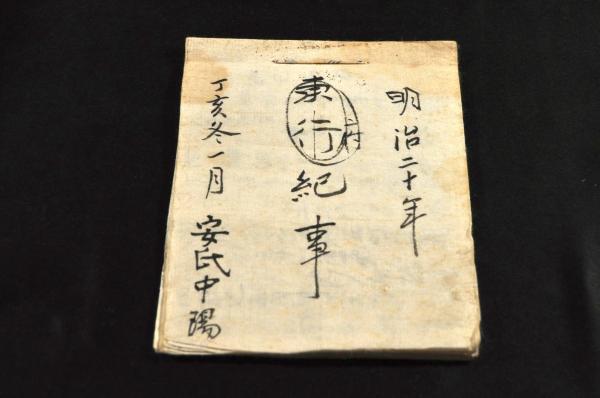 明治二十年
東行府紀事
丁亥冬一月 安氏中陽